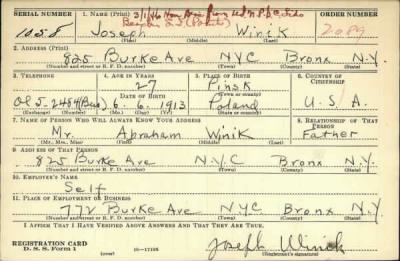 SERIAL NUMBER 1. NAME (Print) ORDER NUMBER
1058 Joseph Winik 2089
(First) (Middle) (Last)
2. ADDRESS (Print)
825 Burke Ave NYC Bronx N.Y.
(Number and street or R. F. D. number) (Town) (County) (State)
3. TELEPHONE 4. AGE IN YEARS 5. PLACE OF BIRTH 6. COUNTRY OF CITIZENSHIP
27 Pinsk
DATE OF BIRTH (Town or county)
Ol 5-2484 (Bus) 6-6-1913 Poland U.S.A.
(Exchange) (Number) (Mo.) (Day) (Yr.) (State or country)
7. NAME OF PERSON WHO WILL ALWAYS KNOW YOUR ADDRESS 8. RELATIONSHIP OF THAT PERSON
Mr. Abraham Winik Father
(Mr., Mrs., Miss) (First) (Middle) (Last)
9. ADDRESS OF THAT PERSON
825 Burke Ave N.Y.C Bronx N.Y.
(Number and street or R. F. D. number) (Town) (County) (State)
10. EMPLOYER'S NAME
Self
11. PLACE OF EMPLOYMENT OR BUSINESS
772 Burke Ave NYC Bronx N.Y.
(Number and street or R. F. D. number) (Town) (County) (State)
I AFFIRM THAT I HAVE VERIFIED ABOVE ANSWERS AND THAT THEY ARE TRUE.
REGISTRATION CARD
D. S. S. Form 1 16-17105 Joseph Winik
(Registrant's signature)